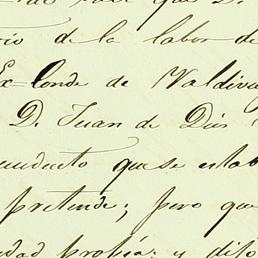 que D.
rio de la labor de
Ex-Conde de Valdivi
D. Juan de Dios
cunducto que se estab
pretende; pero que
edad propia; y dito